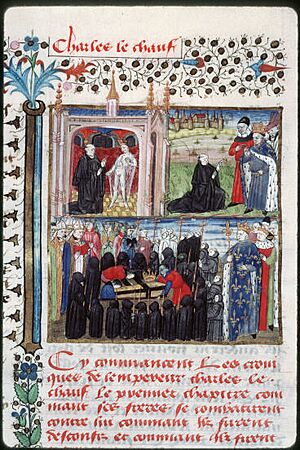 Charles le chauf
Cy commancent les croni
ques de lempereur charles le
chauf Le premier chapitre com
mant ses freres se combatirent
contre lui commant ilz furent
desconfis et commant ilz furent